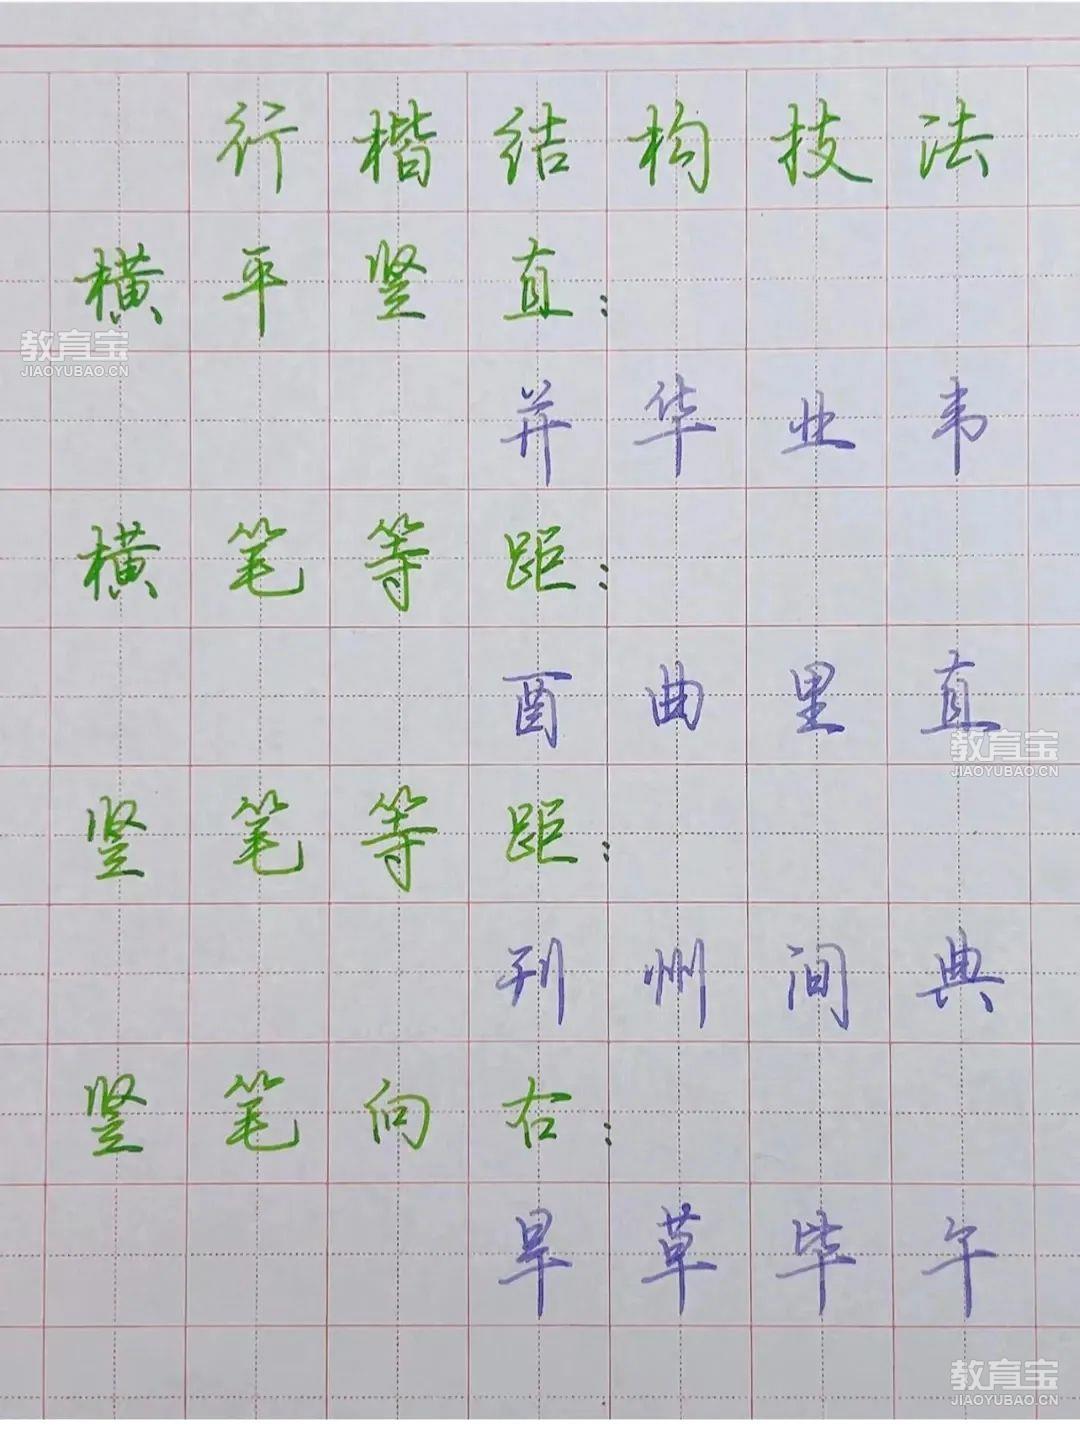 行楷结构技法
横平竖直：
教育宝
JIAOYUBAO.CN
并华业韦
横笔等距：
酉曲里直
教育宝
JIAOYUBAO.CN
竖笔等距：
刊州间典
竖笔向右：
旱草毕午
教育宝
JIAOYUBAO.CN